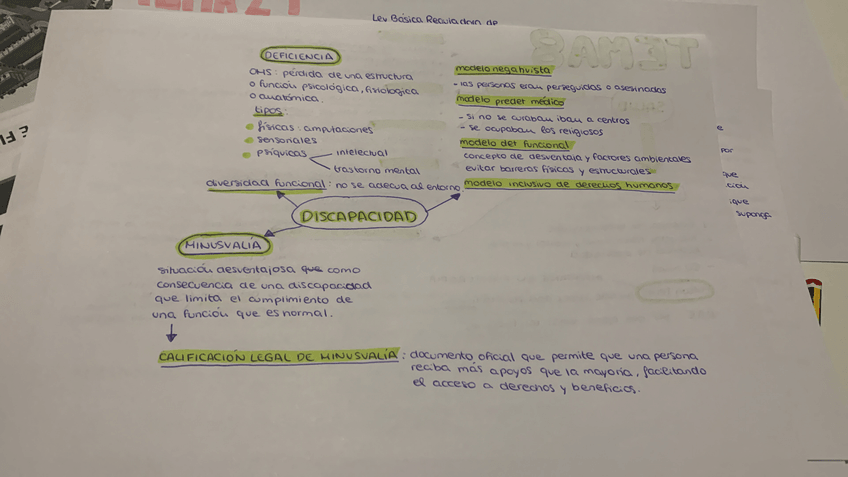 TEMA 2
Ley Básica Reguladora de
DEFICIENCIA
OMS: pérdida de una estructura
o función psicológica, fisiologica
o anatómica.
tipos:
físicas: amputaciones
sensoriales
psíquicas
intelectual
trastorno mental
diversidad funcional: no se adecua al entorno
modelo negativista
- las personas eran perseguidas o asesinadas
modelo preder médico
- si no se curaban iban a centros
- se ocupaban los religiosos
modelo del funcional
concepto de desventaja y factores ambientales
evitar barreras físicas y estructurales
modelo inclusivo de derechos humanos
DISCAPACIDAD
MINUSVALÍA
situación desventajosa que como
consecuencia de una discapacidad
que limita el cumplimiento de
una función que es normal.
CALIFICACIÓN LEGAL DE MINUSVALÍA: documento oficial que permite que una persona
reciba más apoyos que la mayoría, facilitando
el acceso a derechos y beneficios.
por
que
que
suponga